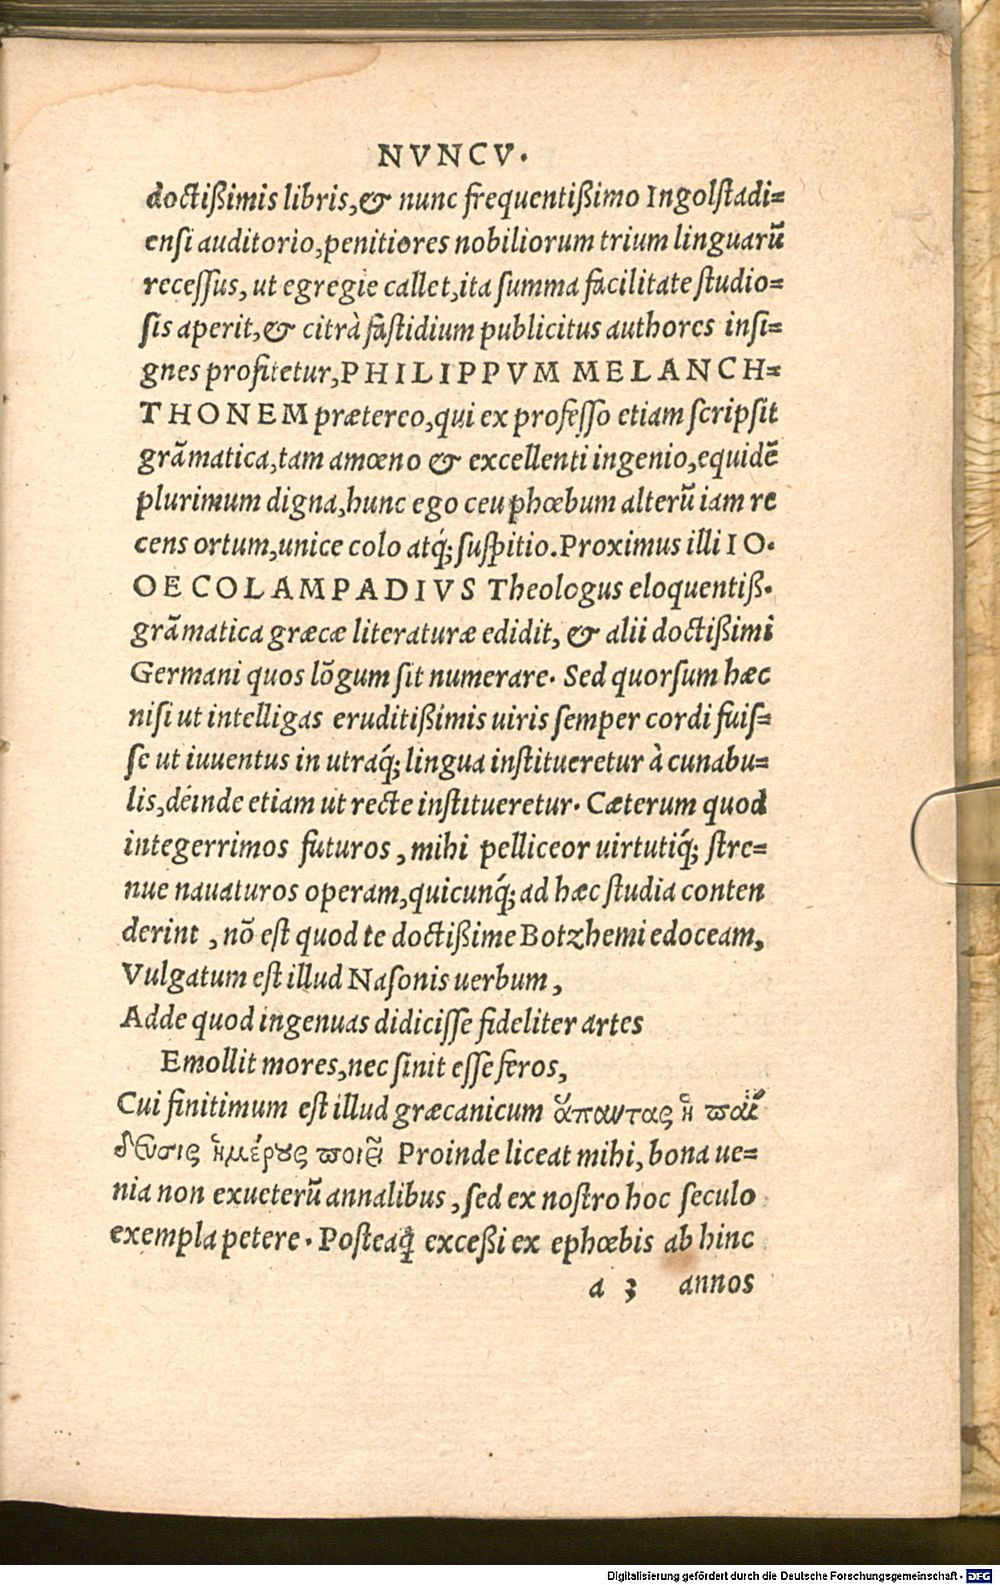 NVNCV.
doctißimis libris, & nunc frequentißimo Ingolſtadi=
enſi auditorio, penitiores nobiliorum trium linguarū
receſſus, ut egregie callet, ita ſumma facilitate ſtudio=
ſis aperit, & citrà faſtidium publicitus authores inſi=
gnes profitetur, PHILIPPVM MELANCH=
THONEM prætereo, qui ex profeſſo etiam ſcripſit
grãmatica, tam amœno & excellenti ingenio, equidẽ
plurimum digna, hunc ego ceu phœbum alterũ iam re
cens ortum, unice colo atq́; ſuſpitio. Proximus illi IO.
OECOLAMPADIVS Theologus eloquentiß.
grãmatica græcæ literaturæ edidit, & alii doctißimi
Germani quos lõgum ſit numerare. Sed quorſum hæc
niſi ut intelligas eruditißimis uiris ſemper cordi fuiſ=
ſe ut iuuentus in utraq́; lingua inſtitueretur à cunabu=
lis, deinde etiam ut recte inſtitueretur. Cæterum quod
integerrimos futuros, mihi pelliceor uirtutiq́; ſtre=
nue nauaturos operam, quicunq́; ad hæc ſtudia conten
derint, nõ eſt quod te doctißime Botzhemi edoceam,
Vulgatum eſt illud Naſonis uerbum,
Adde quod ingenuas didiciſſe fideliter artes
Emollit mores, nec ſinit eſſe feros,
Cui finitimum eſt illud græcanicum ἅπαντας ἡ παί
δευσις ἡμέρους ποιεῖ Proinde liceat mihi, bona ue=
nia non exueterũ annalibus, ſed ex noſtro hoc ſeculo
exempla petere. Poſteaq̃ exceßi ex ephœbis ab hinc
a 3 annos
Digitalisierung gefördert durch die Deutsche Forschungsgemeinschaft - DFG